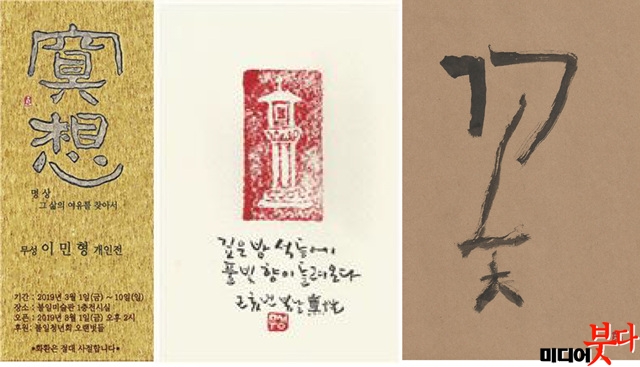 冥想
명상
그 삶의 여유를 찾아서
무성 이민형 개인전
기간 : 2019년 3월 1일(금) ~ 10일(일)
장소 : 불일미술관 1층전시실
오픈 : 2019년 3월 1일(금) 오후 2시
후원: 불일청년회 오랜벗들
*화환은 절대 사절합니다*
깊은 밤 석등에
풀빛 향이
미디어붓다